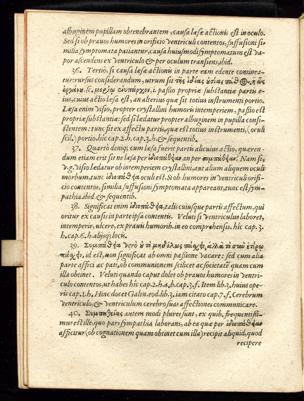 albuginem pupillam obtenebrantem, causa læsæ actionis est in oculo.
Sed si ob prauos humores in orificio ventriculi contentos, suffusioni si-
milia symptomata patiantur, causa huiusmodi symptomatum est va-
por ascendens ex ventriculo & per oculum transiens, ibid.
36. Tertiò, si causa læsæ actionis in parte eam edente contine-
tur rursus considerandum, utrum
i. passio propriæ substantiæ partis e-
ius, aut actio læsa est, an alterius quæ sit totius instrumenti portio.
Læsa enim visio, propter crystallini humoris intemperiem, passio est
propriæ substantiæ: sed si lædatur propter albuginem in pupilla consi-
stentem: tunc fit ex affectu partis, quæ est totius instrumenti, (oculi
scil.) portio, hîc cap. 2. h. cap. 3. h. & sequentib.
37. Quartò deniq; cum læsa fuerit partis alicuius actio, quæren-
dum etiam erit sit ne læsa per ἰδιοπάθειαν an per συμπάθειαν. Nam si,
v.g. visio lædatur ob intemperiem crystallini, aut alium aliquem oculi
morbum, tunc ἰδιοπάθεια oculi est. Si ob humores in ventriculi orifi-
cio contentos, similia, suffusioni symptomata appareant, tunc est sym-
pathia. ibid. & sequentib.
38. Significat enim ἰδιοπάθεια, talem cuiusque partis affectum, qui
oritur ex causis in parte ipsa contentis. Veluti si ventriculus laboret,
intemperie, ulcere, ex prauis humorib. in eo comprehensis. hîc cap. 3.
h. cap. 6. h. alijsq; locis.
39. Συμπάθεια verò
est, non significat ab omni passione vacare: sed cum alia
parte affici ac pati, ob communionem scilicet ac societatē quam cum
illa obinet. Veluti quando caput dolet ob prauos humores in ventri-
culo contentos, ut habes hîc cap. 2. h. & cap. 3. f. Item lib. 3. huius ope-
ris cap. 2. h. Tunc docet Galen. eod. lib. 3. iam citato cap. 7. f. cerebrum
ventriculo, & ventriculum cerebro suas affectiones communicare.
40. Συμπαθείας autem modi plures sunt, ex quib. frequentissi-
mus est ille, quo pars sympathia laborans, ab ea quæ per ἰδιοπάθειαν
afficitur (ob cognationem quam obtinet cum illa) recipit aliquid, quod
recipere